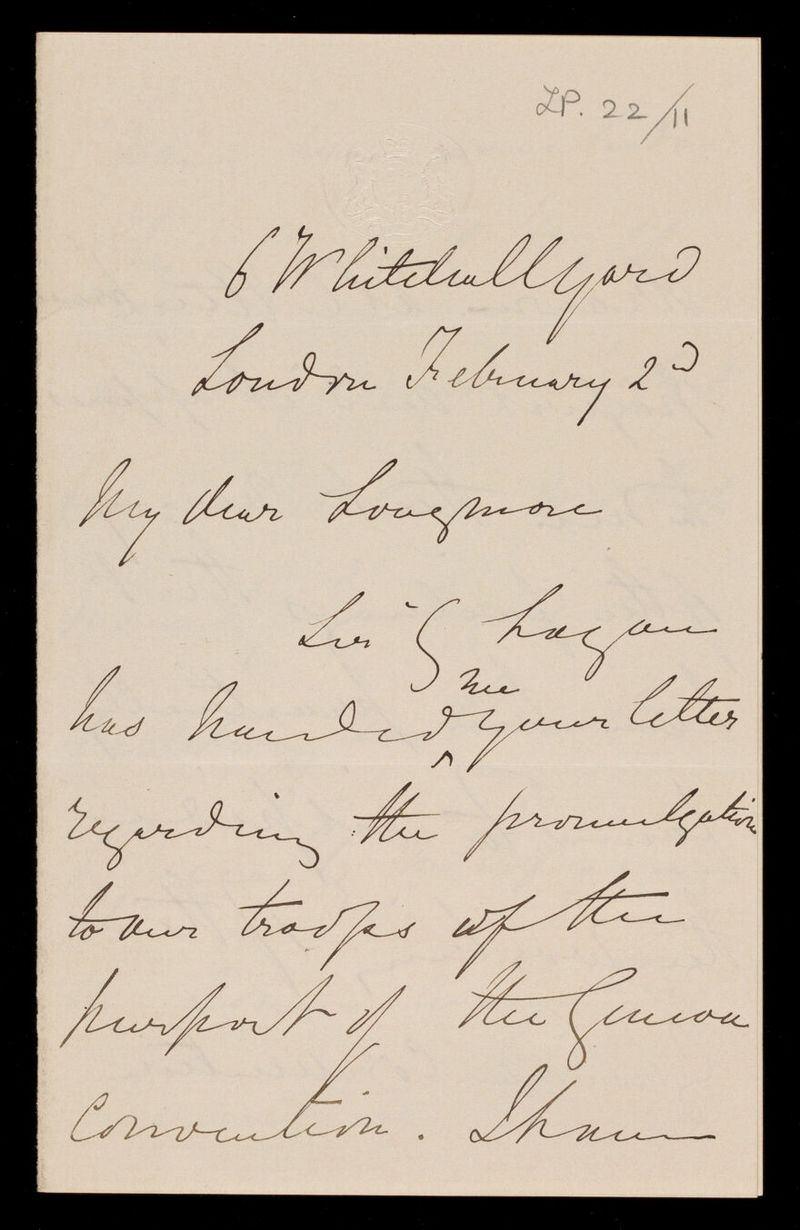 LP. 22/11
6 Whitehall Yard
London February 2d
My dear Longmore
Sir G Logan
has handed me your letter
regarding the promulgation
to our troops of the
purport of the Geneva
Convention. I have